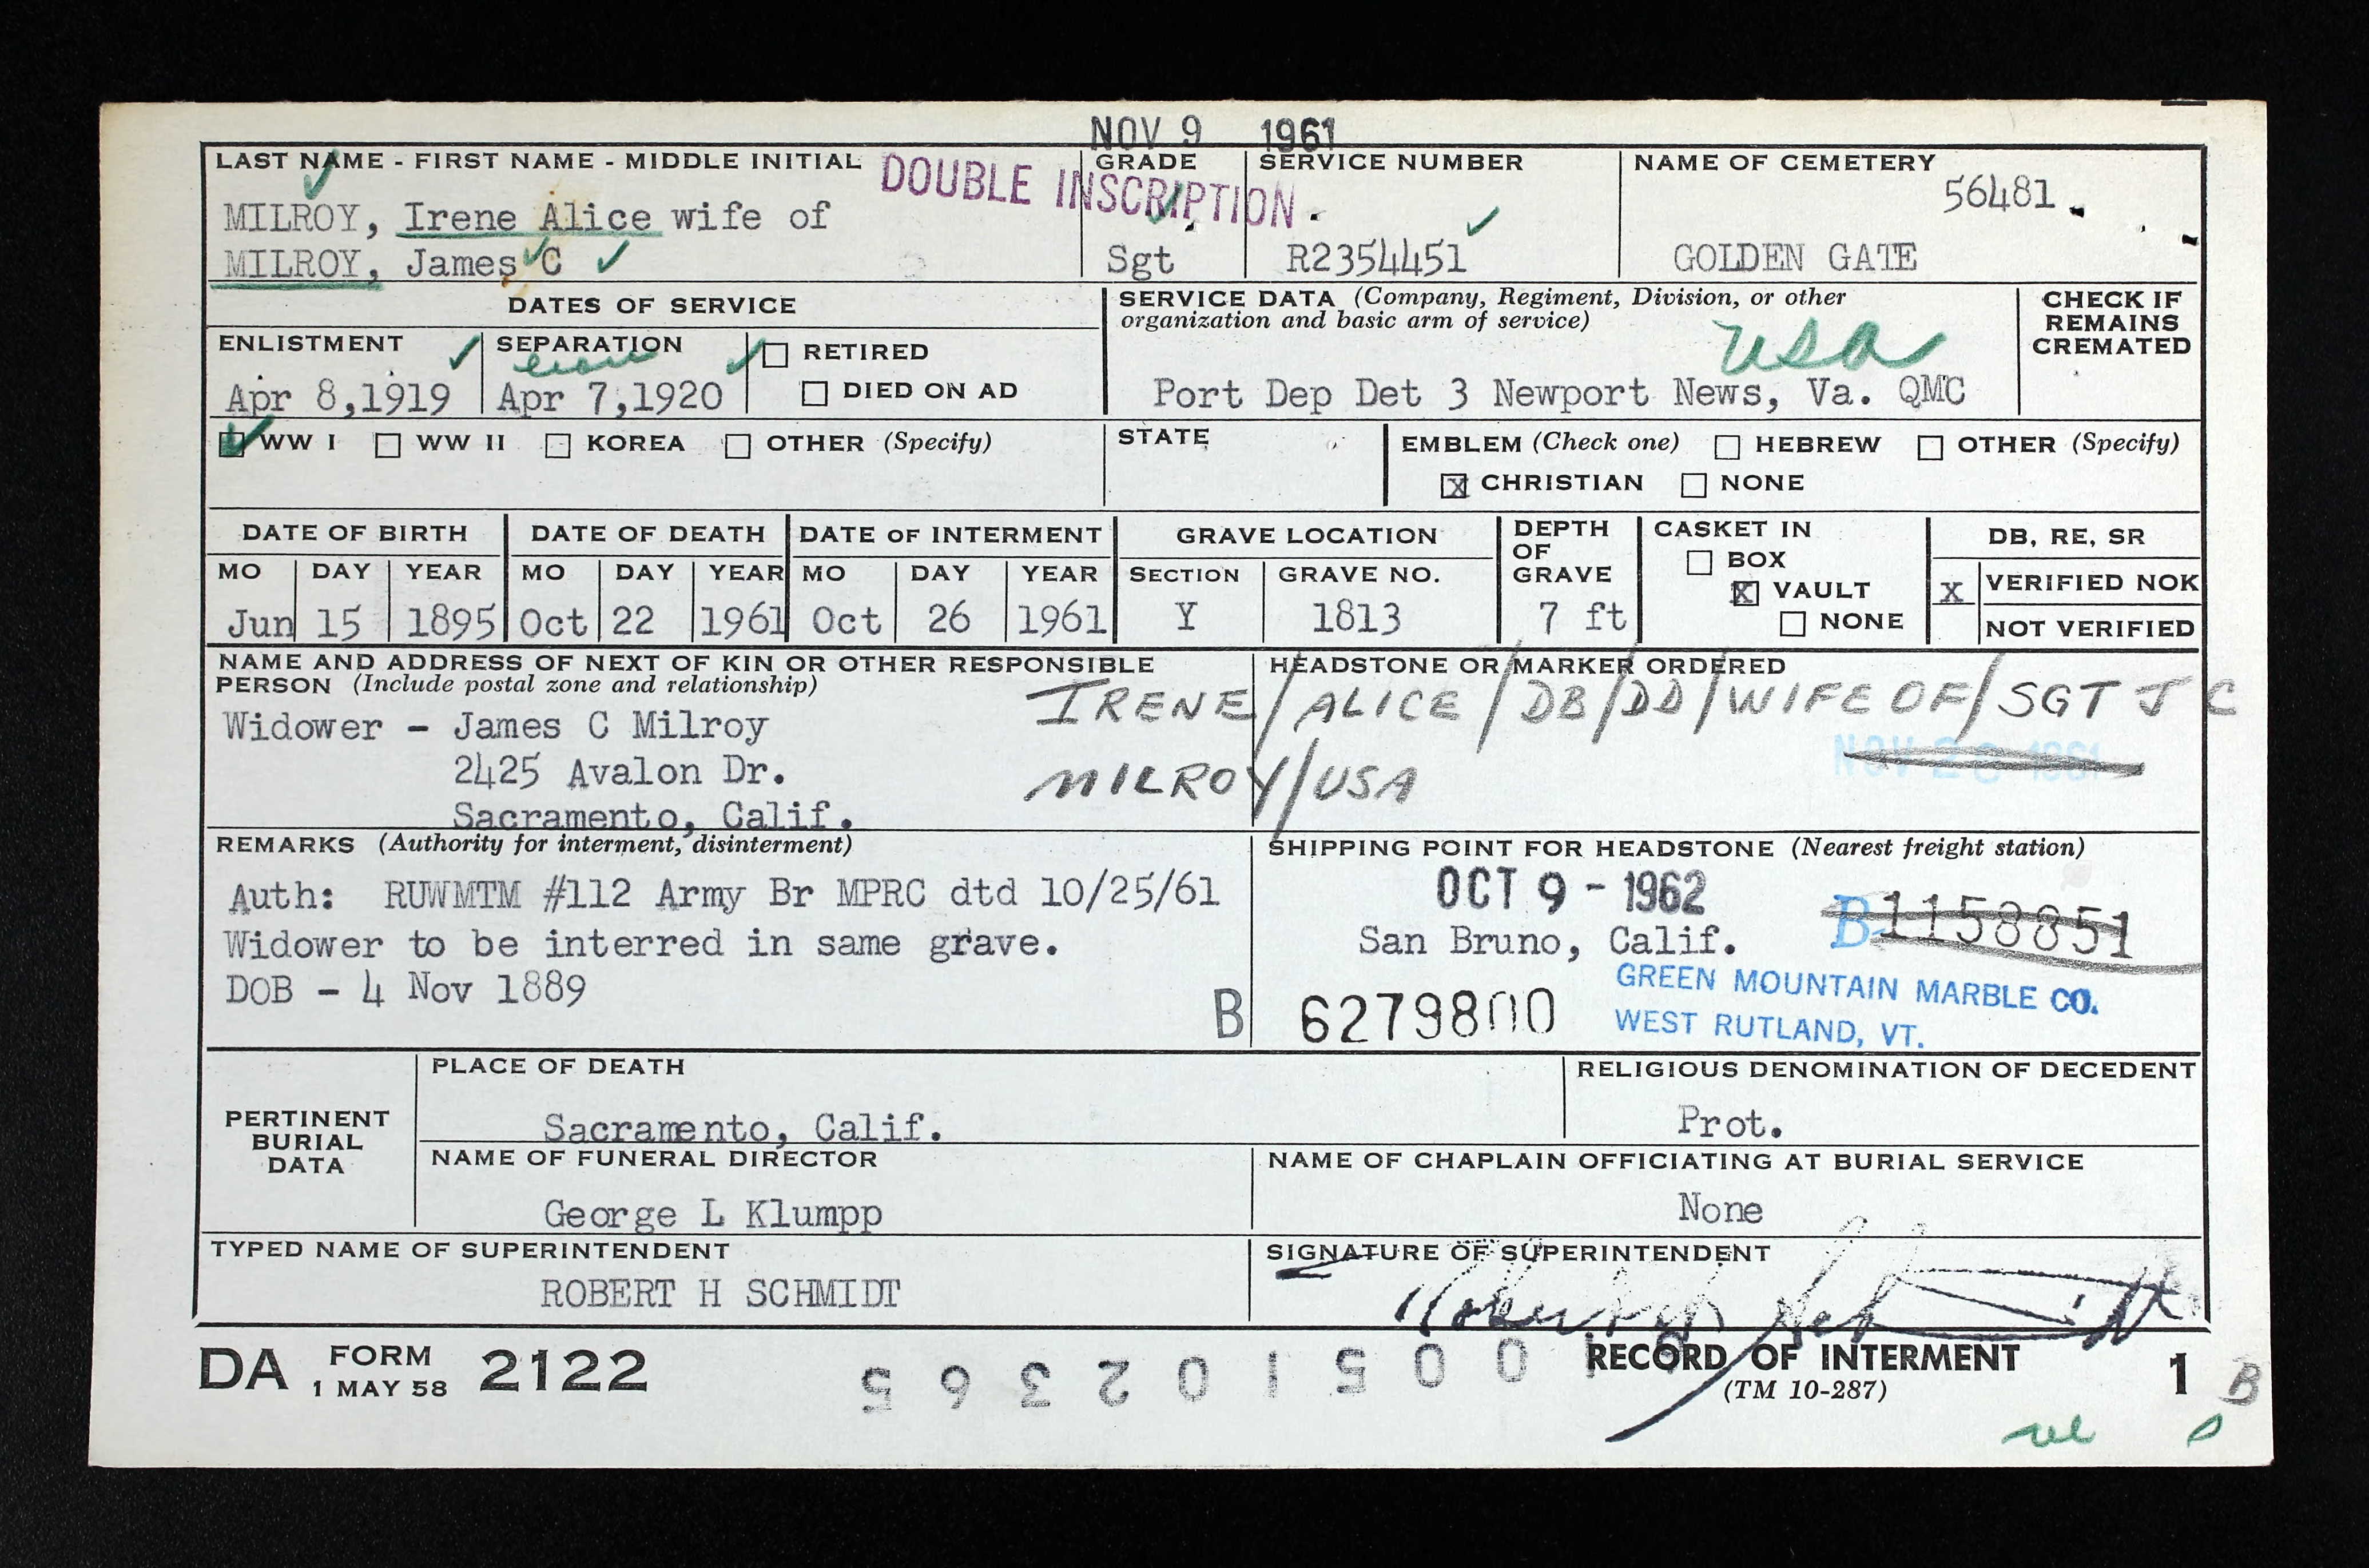 NOV 9 1961
LAST NAME - FIRST NAME - MIDDLE INITIAL
DOUBLE INSCRIPTION.
MILROY, Irene Alice wife of
MILROY, James C
GRADE
Sgt
SERVICE NUMBER
R2354451
NAME OF CEMETERY
56481.
GOLDEN GATE
DATES OF SERVICE
ENLISTMENT
Apr 8,1919
SEPARATION
Apr 7,1920
RETIRED
DIED ON AD
SERVICE DATA (Company, Regiment, Division, or other
organization and basic arm of service)
USA
Port Dep Det 3 Newport News, Va. QMC
CHECK IF
REMAINS
CREMATED
WW I WW II KOREA OTHER (Specify)
STATE
EMBLEM (Check one) HEBREW OTHER (Specify)
X CHRISTIAN NONE
DATE OF BIRTH
MO DAY YEAR
Jun 15 1895
DATE OF DEATH
MO DAY YEAR
Oct 22 1961
DATE OF INTERMENT
MO DAY YEAR
Oct 26 1961
GRAVE LOCATION
SECTION GRAVE NO.
Y 1813
DEPTH
OF
GRAVE
7 ft
CASKET IN
BOX
X VAULT
NONE
DB, RE, SR
X VERIFIED NOK
NOT VERIFIED
NAME AND ADDRESS OF NEXT OF KIN OR OTHER RESPONSIBLE
PERSON (Include postal zone and relationship)
Widower - James C Milroy
2425 Avalon Dr.
Sacramento, Calif.
HEADSTONE OR MARKER ORDERED
IRENE/ALICE/DB/DD/WIFE OF/SGT J C
MILROY/USA
REMARKS (Authority for interment, disinterment)
Auth: RUWMTM #112 Army Br MPRC dtd 10/25/61
Widower to be interred in same grave.
DOB - 4 Nov 1889
B
SHIPPING POINT FOR HEADSTONE (Nearest freight station)
OCT 9 - 1962
B-1158851
San Bruno, Calif.
6279800
GREEN MOUNTAIN MARBLE CO.
WEST RUTLAND, VT.
PERTINENT
BURIAL
DATA
PLACE OF DEATH
Sacramento, Calif.
RELIGIOUS DENOMINATION OF DECEDENT
Prot.
NAME OF FUNERAL DIRECTOR
George L Klumpp
NAME OF CHAPLAIN OFFICIATING AT BURIAL SERVICE
None
TYPED NAME OF SUPERINTENDENT
ROBERT H SCHMIDT
SIGNATURE OF SUPERINTENDENT
Robert H Schmidt
DA FORM 2122
1 MAY 58
RECORD OF INTERMENT
(TM 10-287)
1 B